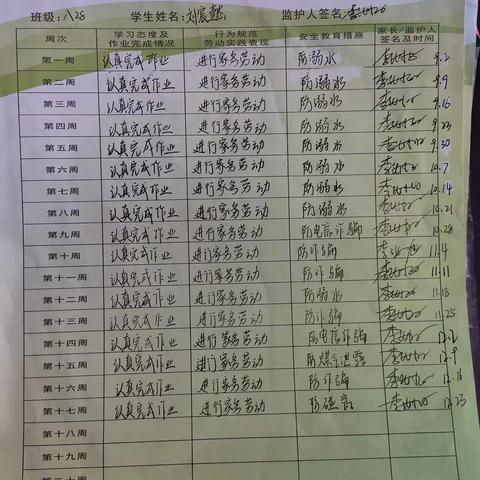 班级: 八28 学生姓名: 刘宸懿 监护人签名:
周次 学习态度及作业完成情况 行为规范劳动实践表现 安全教育措施 家长/监护人签名及时间
第一周 认真完成作业 进行家务劳动 防溺水 9.2
第二周 认真完成作业 进行家务劳动 防溺水 9.9
第三周 认真完成作业 进行家务劳动 防溺水 9.16
第四周 认真完成作业 进行家务劳动 防溺水 9.23
第五周 认真完成作业 进行家务劳动 防溺水 9.30
第六周 认真完成作业 进行家务劳动 防溺水 10.7
第七周 认真完成作业 进行家务劳动 防溺水 10.14
第八周 认真完成作业 进行家务劳动 防溺水 10.21
第九周 认真完成作业 进行家务劳动 防电信诈骗 10.28
第十周 认真完成作业 进行家务劳动 防诈骗 11.4
第十一周 认真完成作业 进行家务劳动 防诈骗 11.11
第十二周 认真完成作业 进行家务劳动 防溺水 11.18
第十三周 认真完成作业 进行家务劳动 防诈骗 11.25
第十四周 认真完成作业 进行家务劳动 防电信诈骗 12.2
第十五周 认真完成作业 进行家务劳动 防煤气泄露 12.9
第十六周 认真完成作业 进行家务劳动 防诈骗 12.16
第十七周 认真完成作业 进行家务劳动 防 12.23
第十八周
第十九周
第二十周